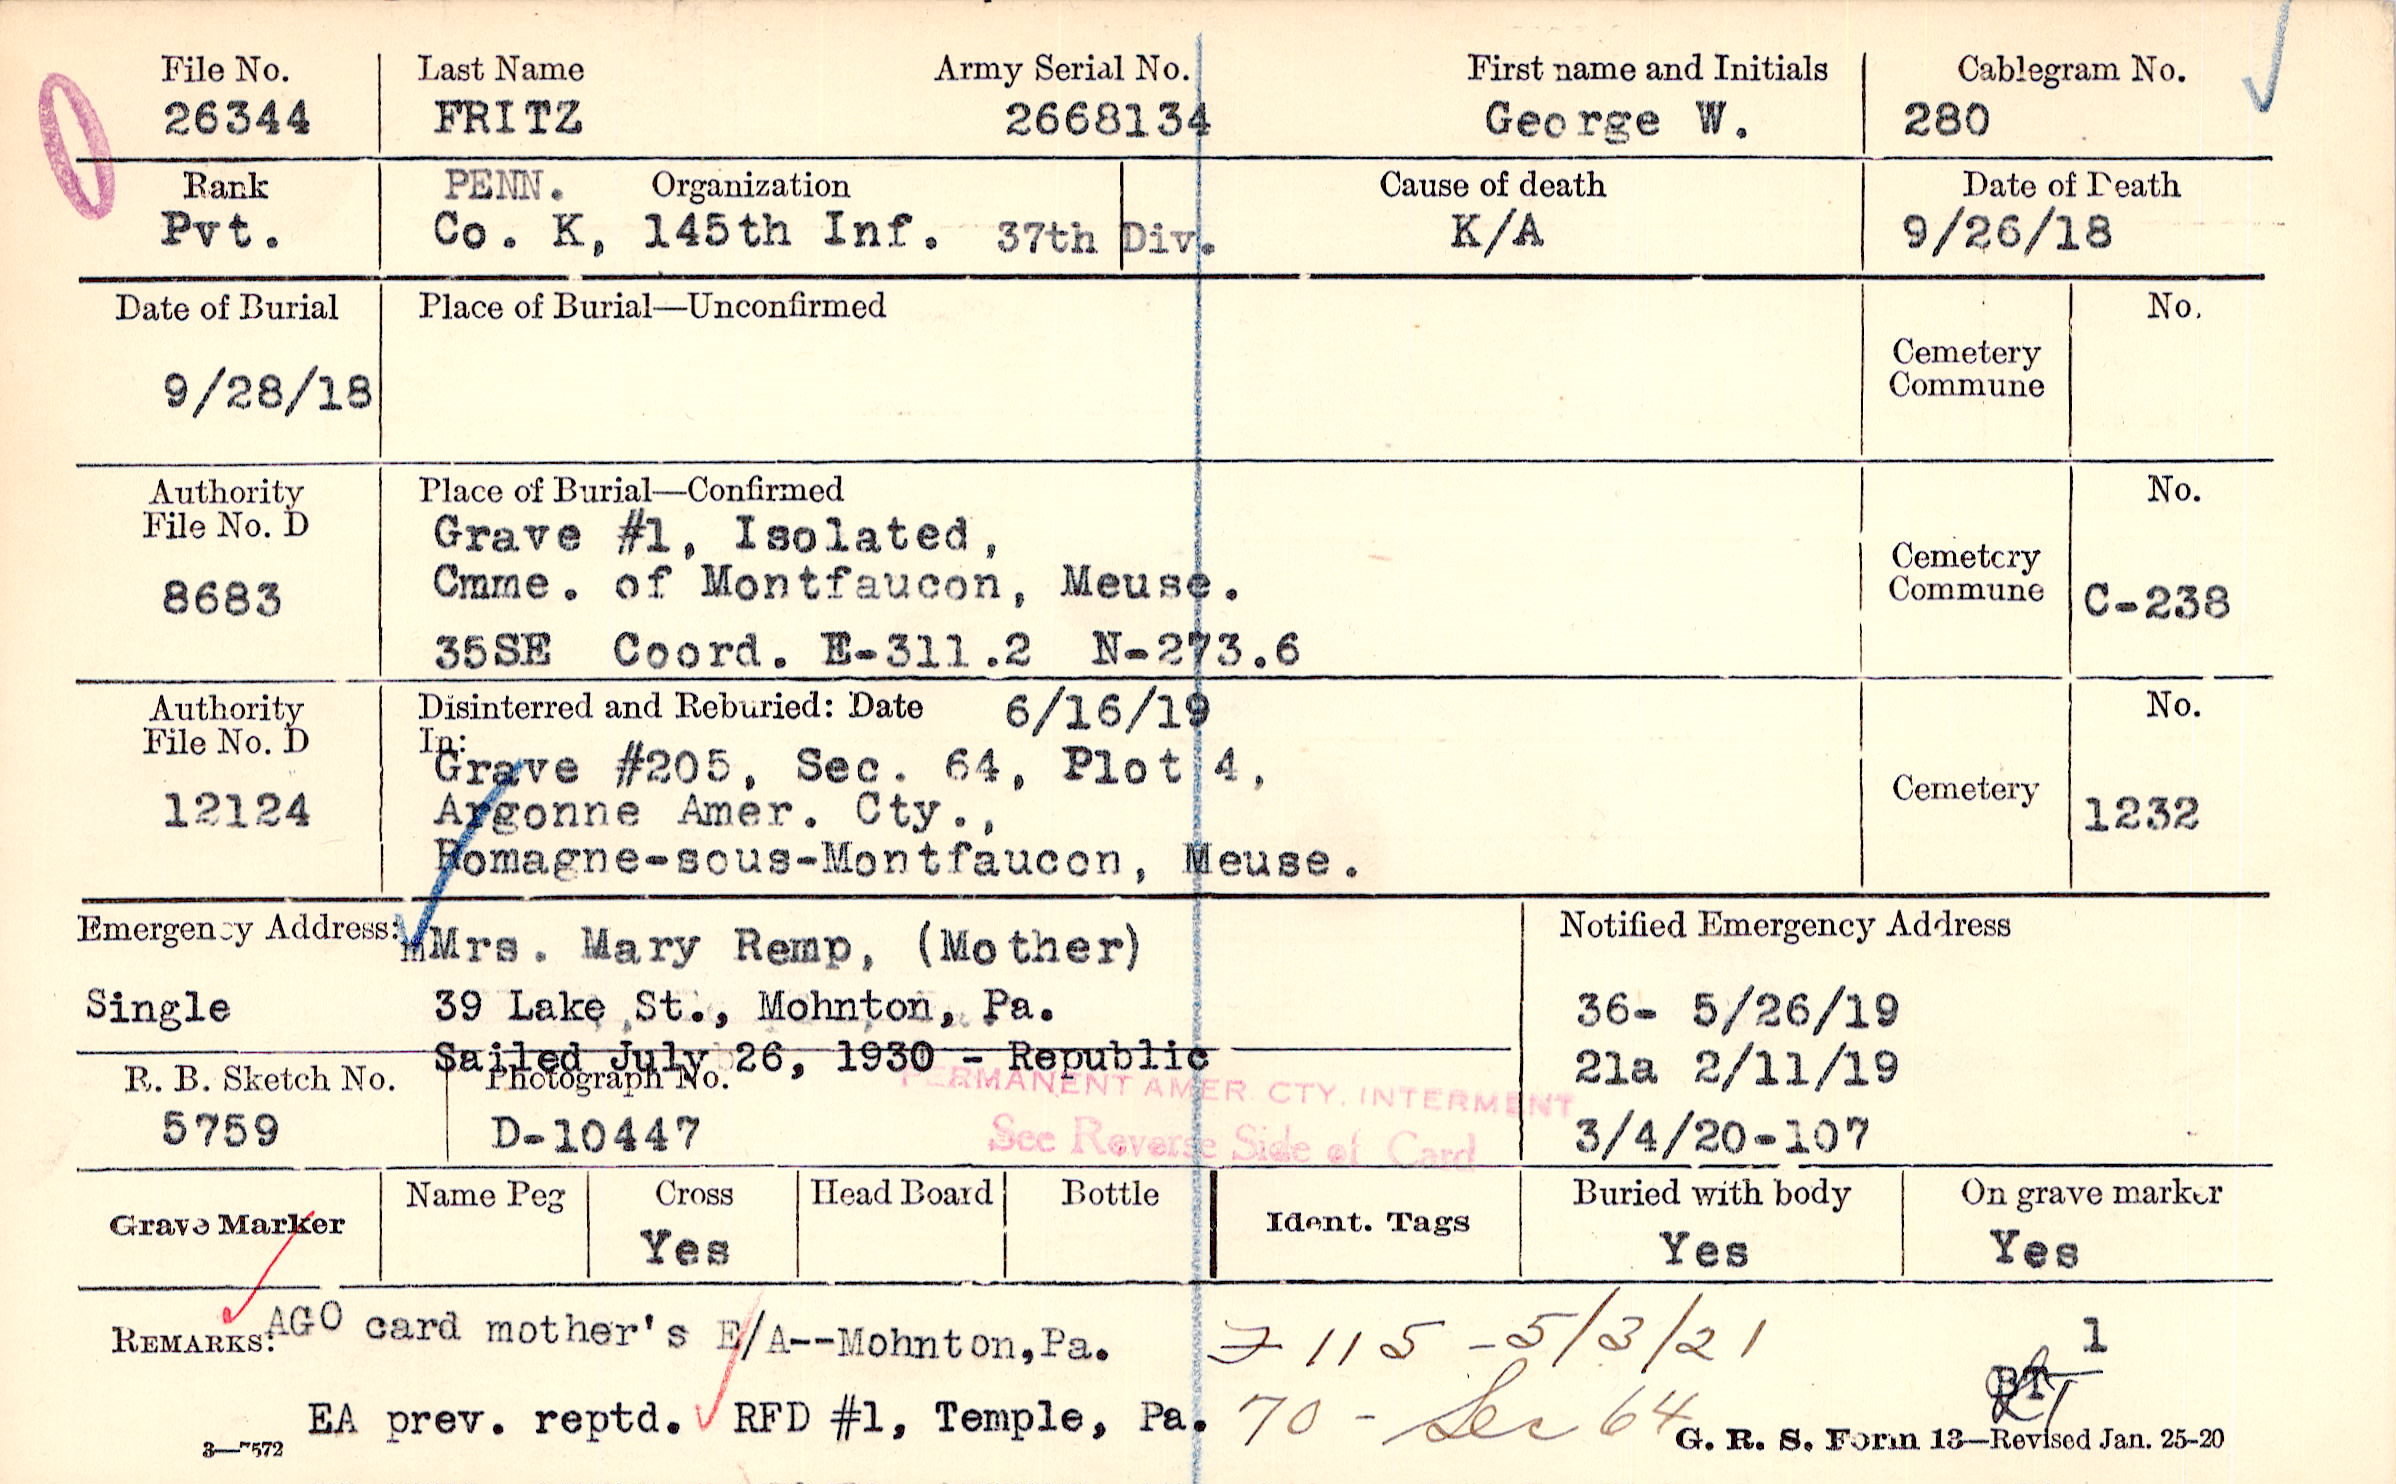 File No. Last Name Army Serial No. First name and Initials Cablegram No.
26344 FRITZ 2668134 George W. 280
Rank PENN. Organization Cause of death Date of Death
Pvt. Co. K, 145th Inf. 37th Div. K/A 9/26/18
Date of Burial Place of Burial—Unconfirmed No.
Cemetery
Commune
9/28/18
Authority Place of Burial—Confirmed No.
File No. D
Grave #1, Isolated,
Cemetery
Commune
8683 Cmme. of Montfaucon, Meuse. C-238
35SE Coord. E-311.2 N-273.6
Authority Disinterred and Reburied: Date 6/16/19 No.
File No. D In:
Grave #205, Sec. 64, Plot 4,
Cemetery
12124 Argonne Amer. Cty., 1232
Romagne-sous-Montfaucon, Meuse.
Emergency Address: Mrs. Mary Remp, (Mother) Notified Emergency Address
Single 39 Lake St., Mohnton, Pa. 36- 5/26/19
Sailed July 26, 1930 - Republic 21a 2/11/19
R. B. Sketch No. Photograph No. PERMANENT AMER. CTY. INTERMENT
5759 D-10447 See Reverse Side of Card 3/4/20-107
Grave Marker Name Peg Cross Head Board Bottle Ident. Tags Buried with body On grave marker
Yes Yes Yes
REMARKS: AGO card mother's E/A--Mohnton,Pa. 115 - 5/3/21 1
EA prev. reptd. RFD #1, Temple, Pa. 70 - Sec 64 BT
3—7572 G. R. S. Form 13—Revised Jan. 25-20